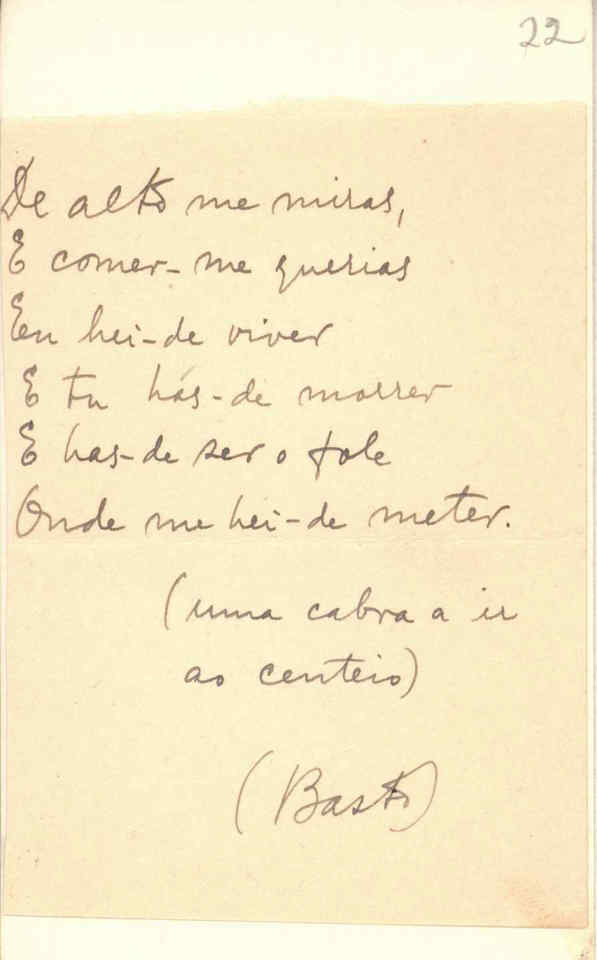 22
De alto me miras,
E comer-me querias
Eu hei-de viver
E tu hás-de morrer
E has-de ser o fole
Onde me hei-de meter.
(uma cabra a ir
ao centeio)
(Basto)